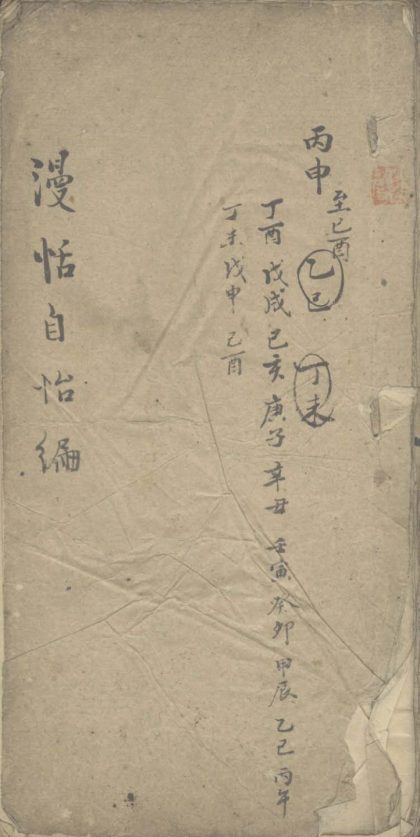 丙申至己酉
乙巳 丁未
丁酉 戊戌 己亥 庚子 辛丑 壬寅 癸卯 甲辰 乙巳 丙午
丁未 戊申 己酉
漫恬自怡編